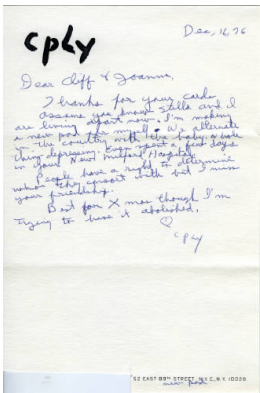 cpLy
Dec, 16, 76
Dear Cliff & Joanne,
Thanks for your card.
Assume you know Stella and I
are living apart now. I'm making
a new pad for myself. We alternate
in the country with the baby, a whole
thing depressing. Even spent a few days
in your New Milford Hospital.
People have a right to determine
whom they consort with but I miss
your friendship.
Best for Xmas though I'm
trying to have it abolished.
CPLY
52 EAST 89th STREET, N.Y.C., N.Y. 10028
new pad